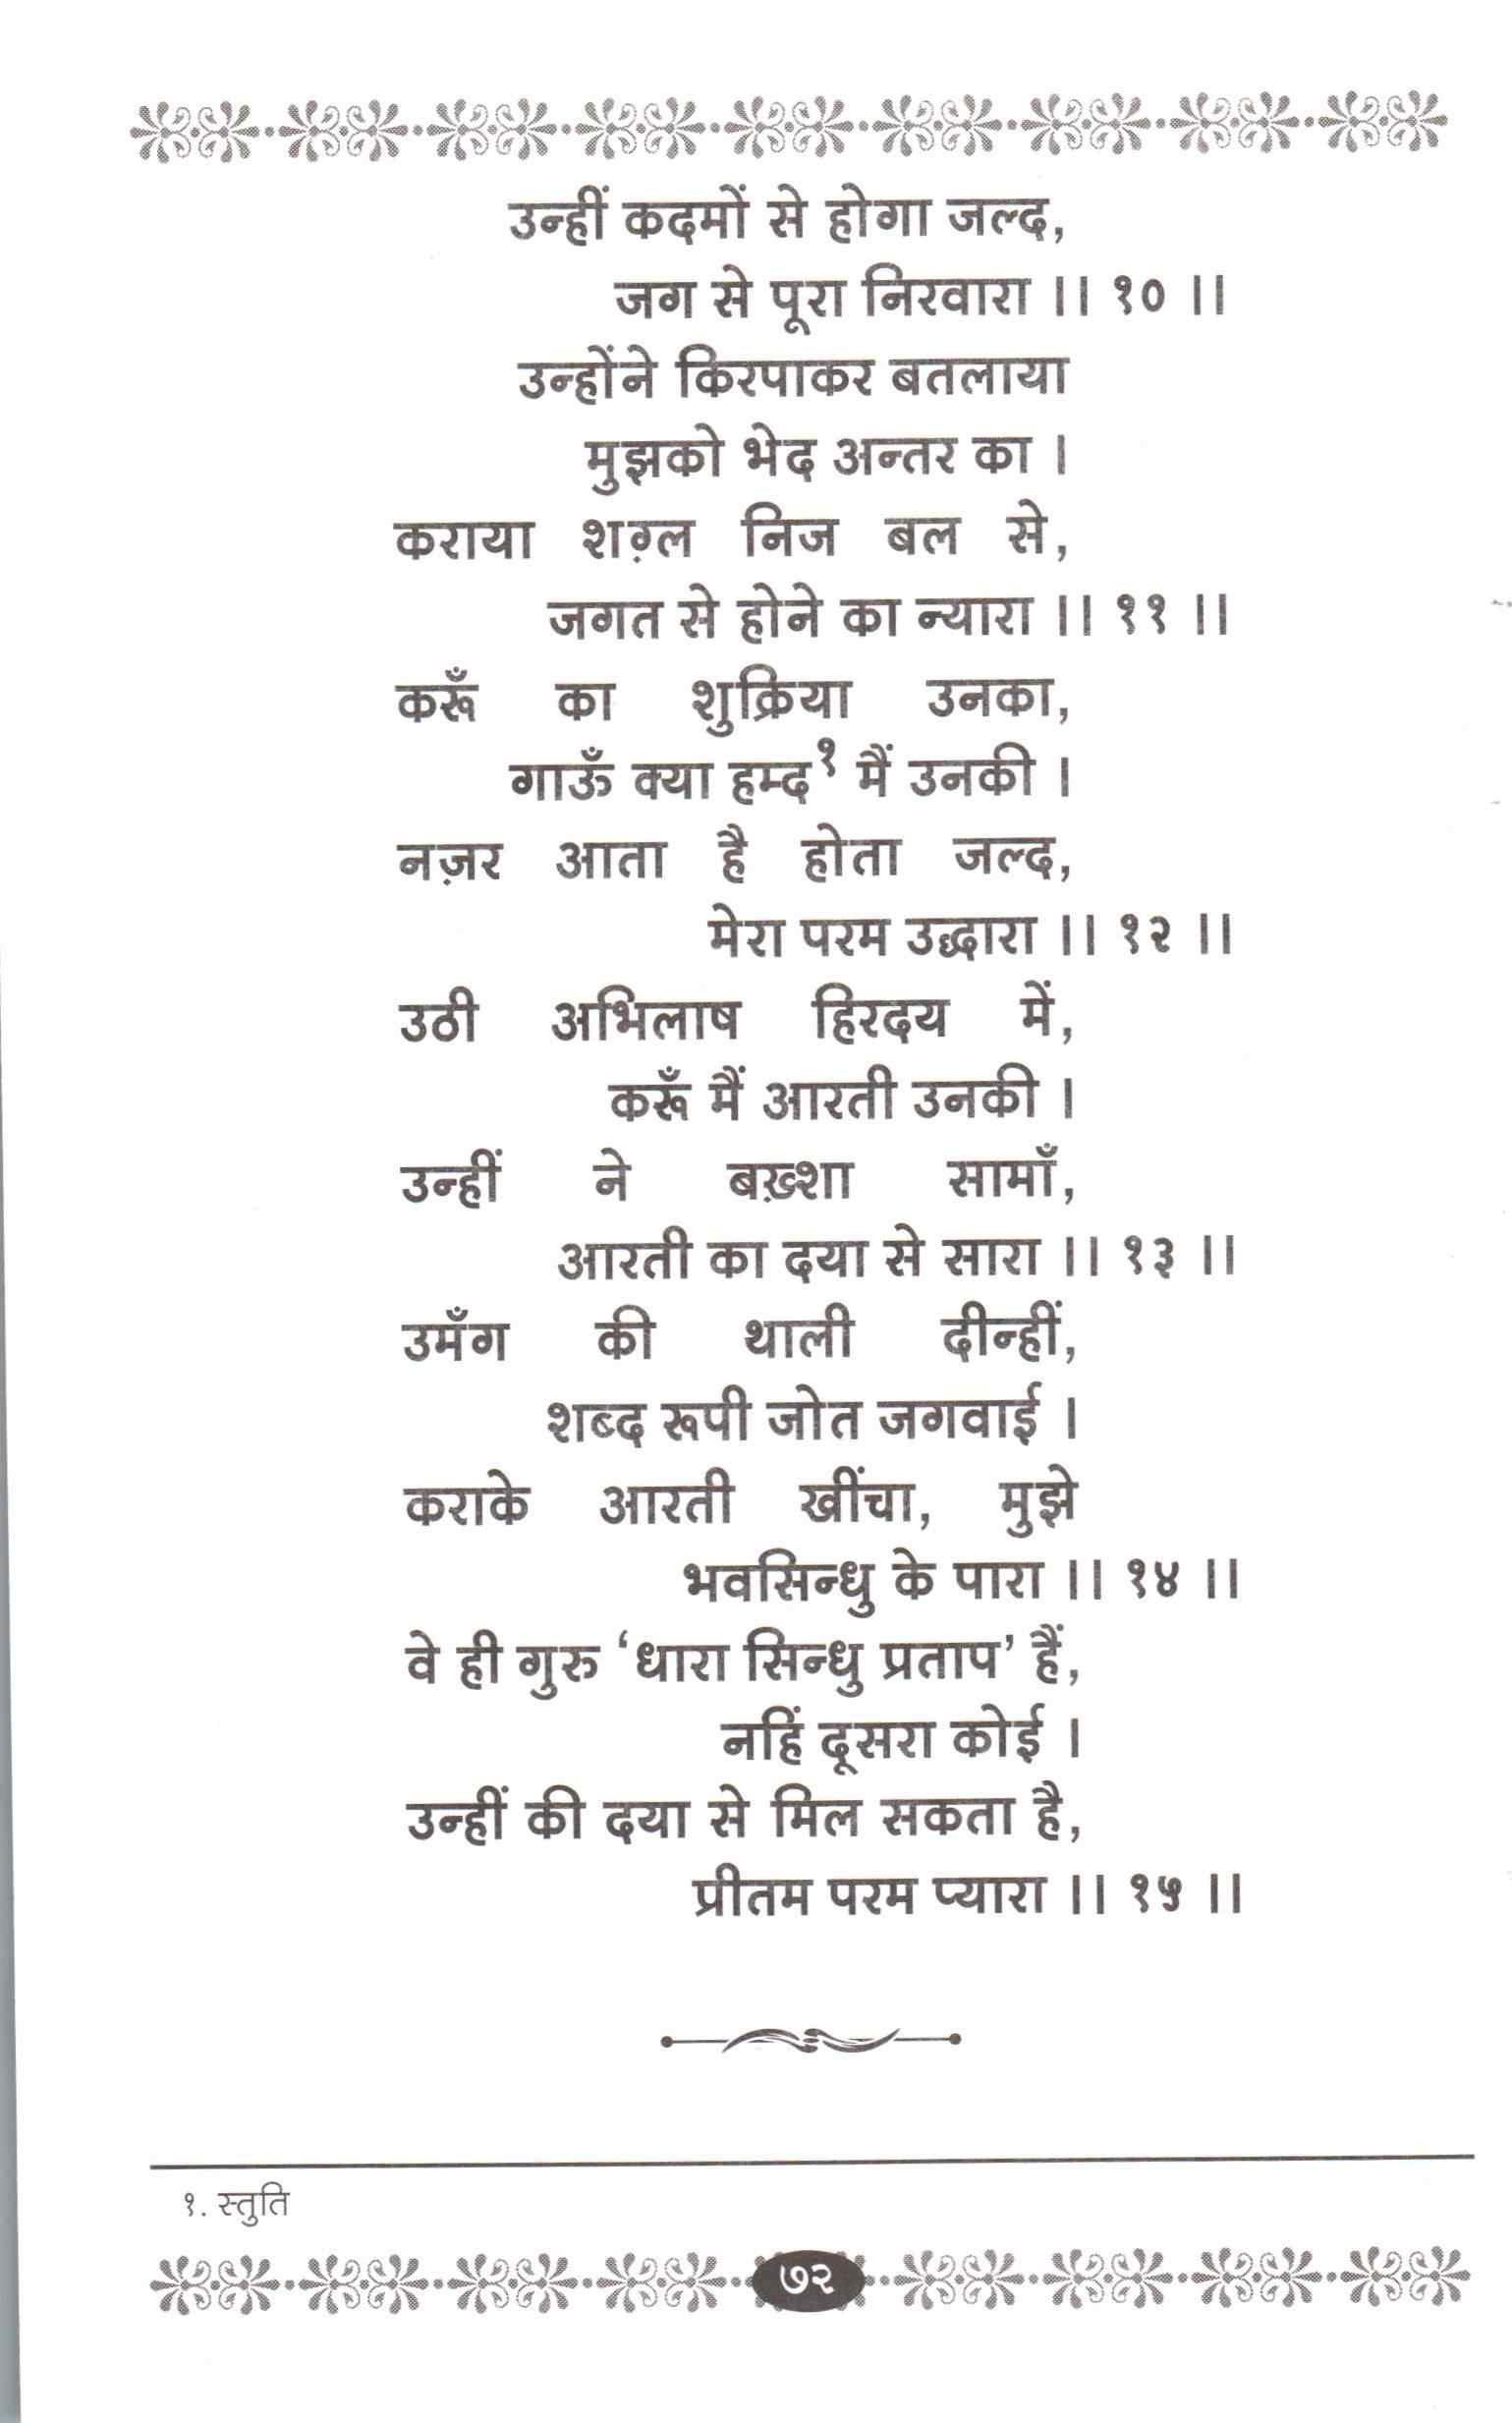 उन्हीं कदमों से होगा जल्द,
जग से पूरा निरवारा ।। १० ।।
उन्होंने किरपाकर बतलाया
मुझको भेद अन्तर का ।
कराया शग़्ल निज बल से,
जगत से होने का न्यारा ।। ११ ।।
करूँ का शुक्रिया उनका,
गाऊँ क्या हम्द१ मैं उनकी ।
नज़र आता है होता जल्द,
मेरा परम उद्धारा ।। १२ ।।
उठी अभिलाष हिरदय में,
करूँ मैं आरती उनकी ।
उन्हीं ने बख़्शा सामाँ,
आरती का दया से सारा ।। १३ ।।
उमँग की थाली दीन्हीं,
शब्द रूपी जोत जगवाई ।
कराके आरती खींचा, मुझे
भवसिन्धु के पारा ।। १४ ।।
वे ही गुरु ‘धारा सिन्धु प्रताप’ हैं,
नहिं दूसरा कोई ।
उन्हीं की दया से मिल सकता है,
प्रीतम परम प्यारा ।। १५ ।।
१. स्तुति
७२